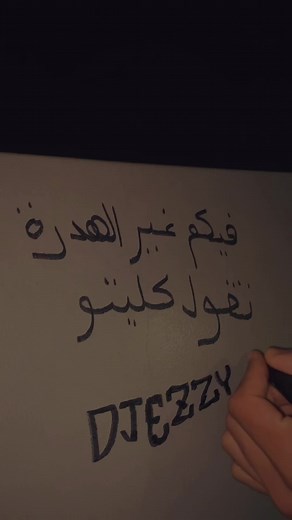 فيكم غير الهدرة
تقول كليتو
DJEZZY